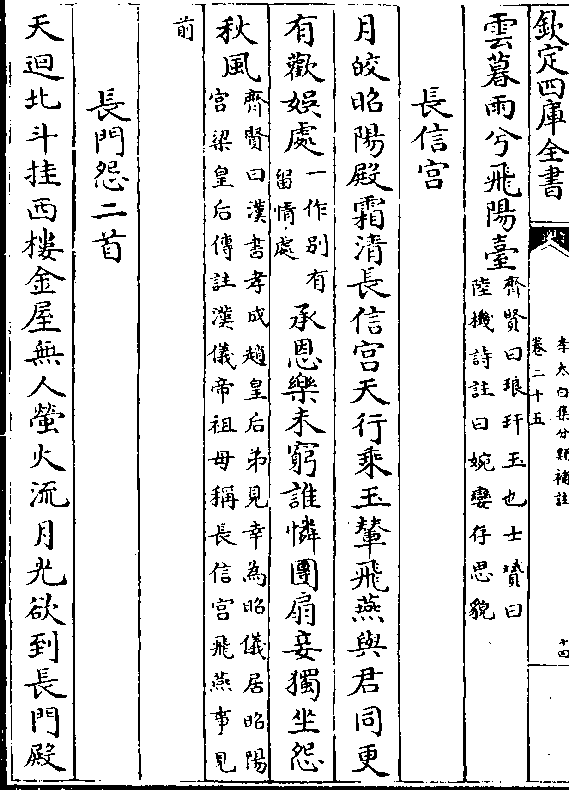 欽定四庫全書
李太白集分類補註
卷二十五
十四
雲暮雨兮飛陽臺
齊賢曰琅玕玉也士贇曰
陸機詩註曰婉孌存思貌
長信宮
月皎昭陽殿霜清長信宮天行乘玉輦飛燕與君同更
有歡娛處
一作別有
留情處
承恩樂未窮誰憐團扇妾獨坐怨
秋風
齊賢曰漢書孝成趙皇后弟見幸為昭儀居昭陽
宮梁皇后傳註漢儀帝祖母稱長信宮飛燕事見
前
長門怨二首
天迴北斗挂西樓金屋無人螢火流月光欲到長門殿